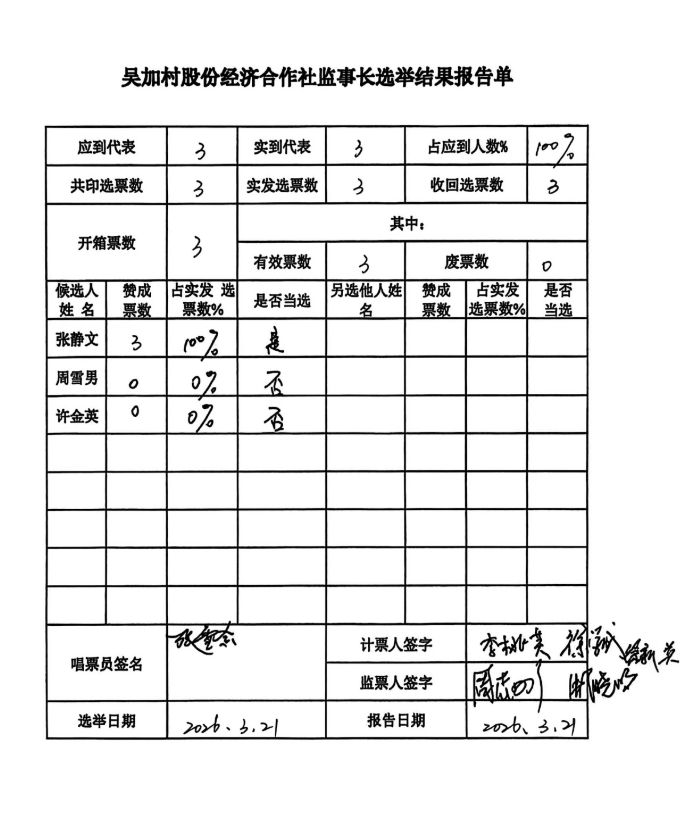 吴加村股份经济合作社监事长选举结果报告单
应到代表 3 实到代表 3 占应到人数% 100%
共印选票数 3 实发选票数 3 收回选票数 3
开箱票数 3 其中:
有效票数 3 废票数 0
候选人姓 名 赞成票数 占实发 选票数% 是否当选 另选他人姓名 赞成票数 占实发选票数% 是否当选
张静文 3 100% 是
周雪男 0 0% 否
许金英 0 0% 否
唱票员签名 计票人签字
监票人签字
选举日期 2026、3.21 报告日期 2026、3.21